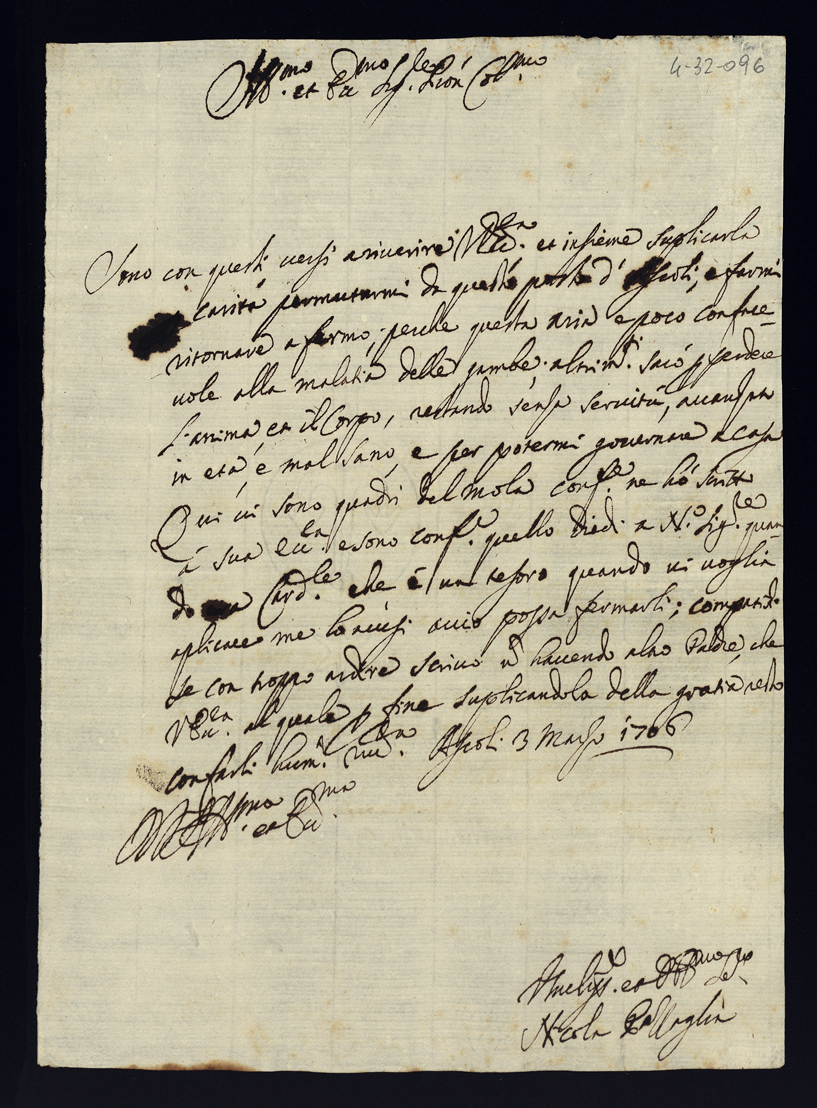 4-32-096
Ill.mo et Ecc.mo Sig.re Pron Col.mo
Sono con questi versi a riuerire V. Ecc.za et insieme suplicarla
carità permutarmi da questo posto d' Ascoli, e farmi
ritornare a fermo, perche questa aria e poco conface-
uole alla malatia delle gambe, altrim.ti sarà p perdere
L'anima et il Corpo, restando senza seruitù, auanzato
in età, e mal sano, e per potermi gouernare a casa
Qui ui sono quadri del Mola ne hò scritto
à sua Ecc.za e sono quello diedi a N.ro Sig.re quan
do era Card.le che è un tesoro quando ui voglia
aplicare me lo auisi acciò possa fermarli; compatid.
se con troppo ardire scriuo ñ hauendo altro Padre, che
V. Ecc.za al quale p fine suplicandola della gratia resto
con farli hum.a riu.za Ascoli 3 Marzo 1706
D. V. Ill.ma et Ecc.ma
Vmeliss. et
Nicola Battaglia